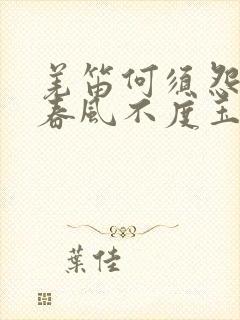 羌笛何須怨
春風不度玉
葉佳